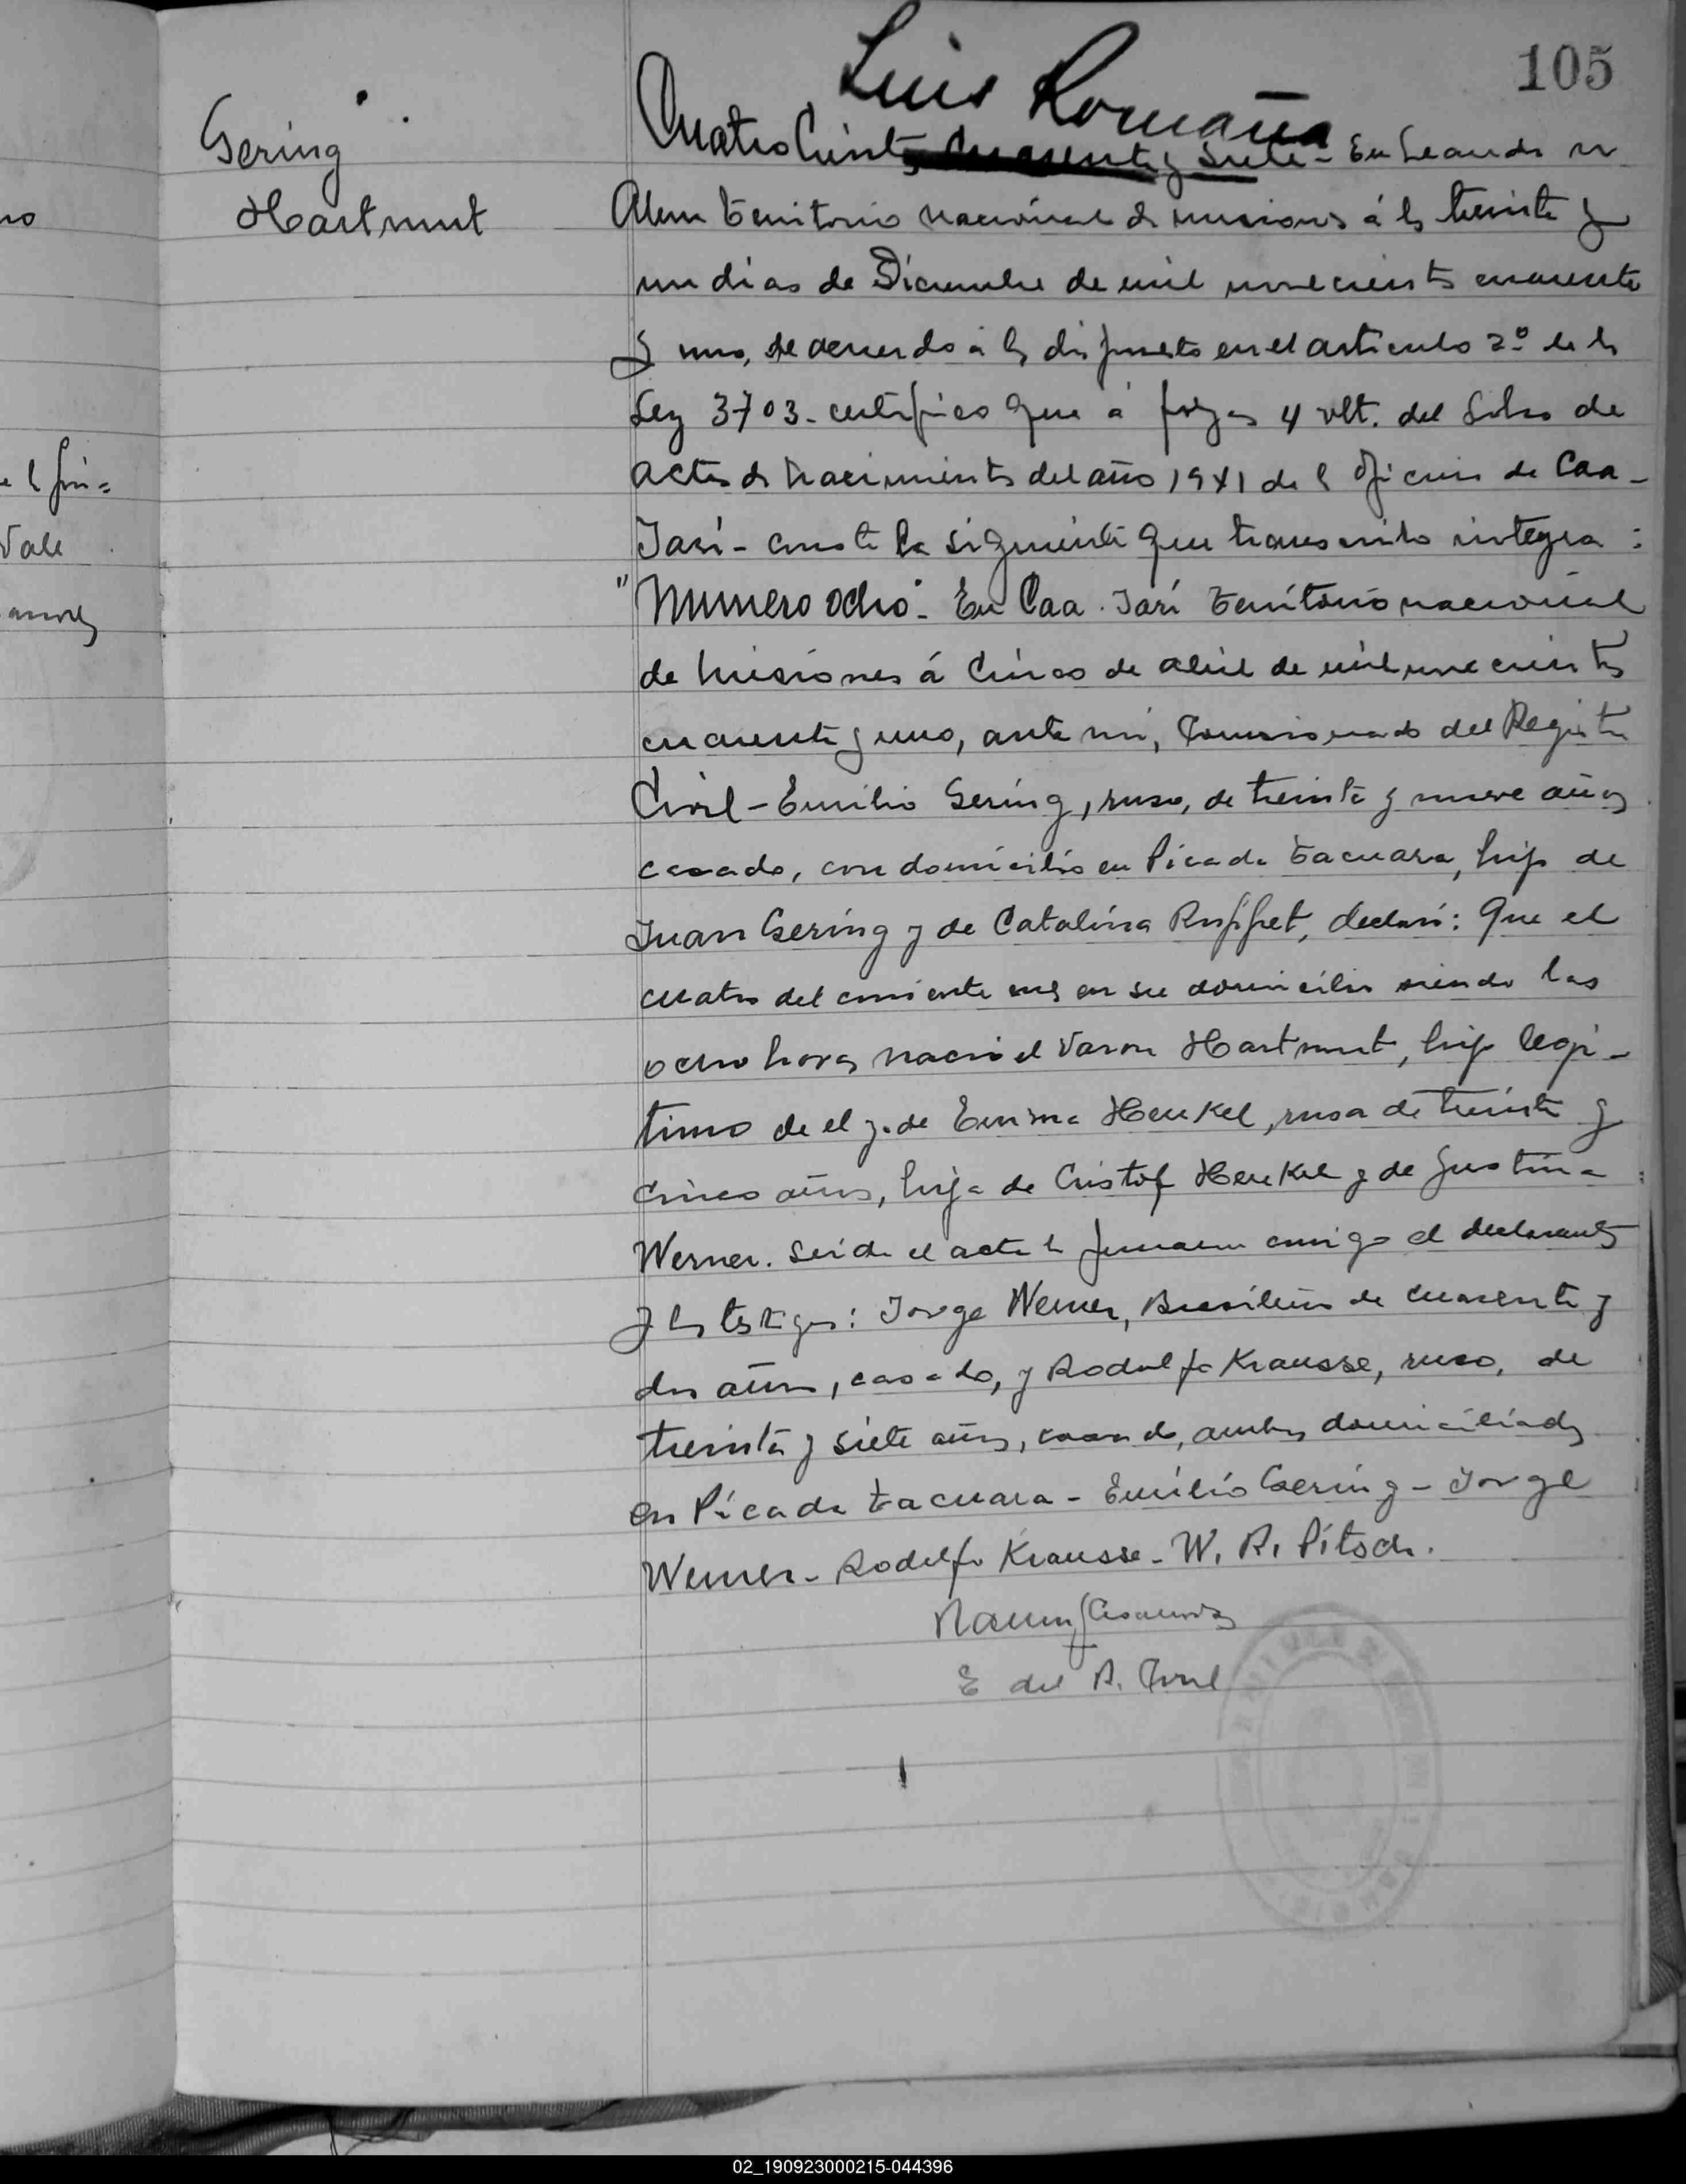 105
Luis Romaña
Gering
Hartmut
CuatroCientos Cuarenta y Siete - En Leandro N.
Alem territorio nacional de misiones á los treinta y
un dias de Diciembre de mil novecientos cuarenta
y uno, de acuerdo a lo dispuesto en el articulo 2º de la
Ley 3703 - certifico que á fojas 4 vlt. del Libro de
actas de Nacimientos del año 1941 de la oficina de Caa-
Yarí - consta la siguiente que transcribo integra :
"Numero ocho". En Caa. Yarí territorio nacional
de Misiones á Cinco de abril de mil novecientos
cuarenta y uno, ante mi, Comisionado del Registro
Civil - Emilio Gering, ruso, de treinta y nueve años
casado, con domicilio en Picada tacuara, hijo de
Juan Gering y de Catalina, declaró: Que el
cuatro del corriente mes en su domicilio siendo las
ocho horas nació el Varon Hartmut, hijo legi-
timo de el y de Emma Henkel, rusa de treinta y
cinco años, hija de Cristof Henkel y de Justina
Werner. Leida el acta la firmaron conmigo el declarante
y los testigos: Jorge Werner, Brasileño de cuarenta y
dos años, casado, y Rodolfo Krausse, ruso, de
treinta y siete años, casado, ambos domiciliados
en Picada tacuara - Emilio Gering - Jorge
Werner - Rodolfo Krausse - W. R. Pitsch.
E del R. Civil
e la fin=
Vale
no
02_190923000215-044396